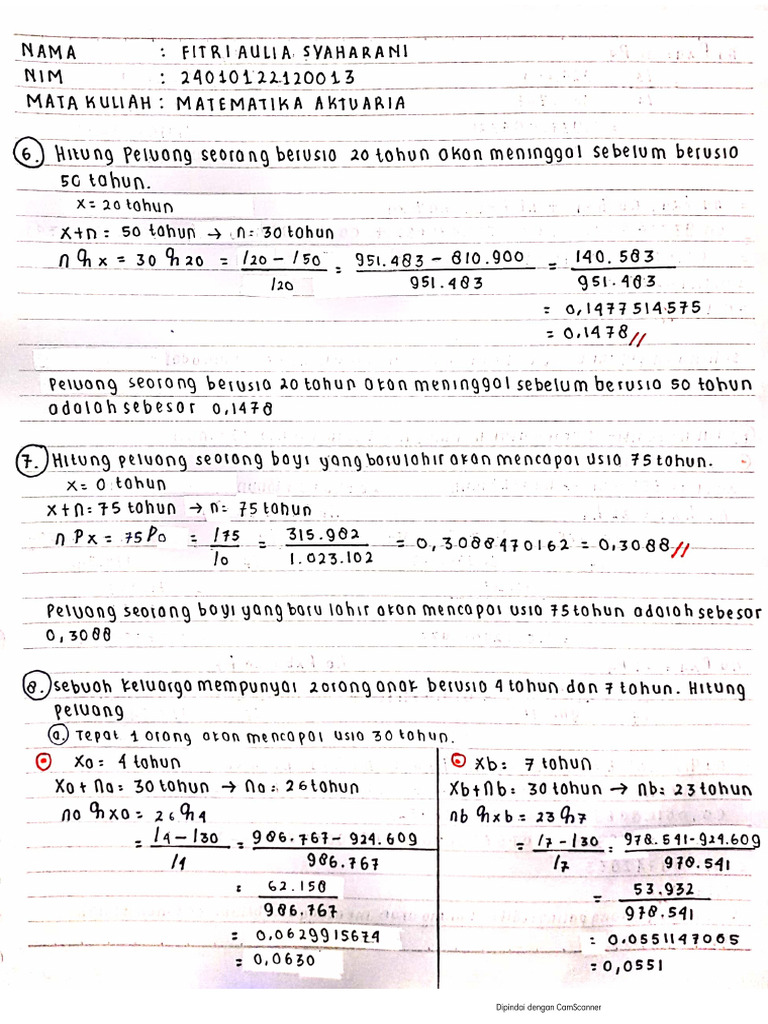 NAMA : FITRI AULIA SYAHARANI
NIM : 24010122120013
MATA KULIAH : MATEMATIKA AKTUARIA
6. Hitung Peluang seorang berusia 20 tahun akan meninggal sebelum berusia
50 tahun.
x = 20 tahun
x+n = 50 tahun → n = 30 tahun
n q x = 30 q 20 = l20 - l50 / l20 = 951.483 - 810.900 / 951.483 = 140.583 / 951.483
= 0,1477514575
= 0,1478 //
Peluang seorang berusia 20 tahun akan meninggal sebelum berusia 50 tahun
adalah sebesar 0,1478
7. Hitung peluang seorang bayi yang baru lahir akan mencapai usia 75 tahun.
x = 0 tahun
x+n = 75 tahun → n = 75 tahun
n P x = 75 P0 = l75 / l0 = 315.982 / 1.023.102 = 0,3088470162 = 0,3088 //
Peluang seorang bayi yang baru lahir akan mencapai usia 75 tahun adalah sebesar
0,3088
8. Sebuah keluarga mempunyai 2 orang anak berusia 4 tahun dan 7 tahun. Hitung
peluang
a. Tepat 1 orang akan mencapai usia 30 tahun.
xa = 4 tahun
xa + na = 30 tahun → na = 26 tahun
na q xa = 26 q 4
= l4 - l30 / l4 = 986.767 - 924.609 / 986.767
= 62.158 / 986.767
= 0,0629915674
= 0,0630
xb = 7 tahun
xb + nb = 30 tahun → nb = 23 tahun
nb q xb = 23 q 7
= l7 - l30 / l7 = 978.541 - 924.609 / 978.541
= 53.932 / 978.541
= 0,0551147065
= 0,0551
Dipindai dengan CamScanner